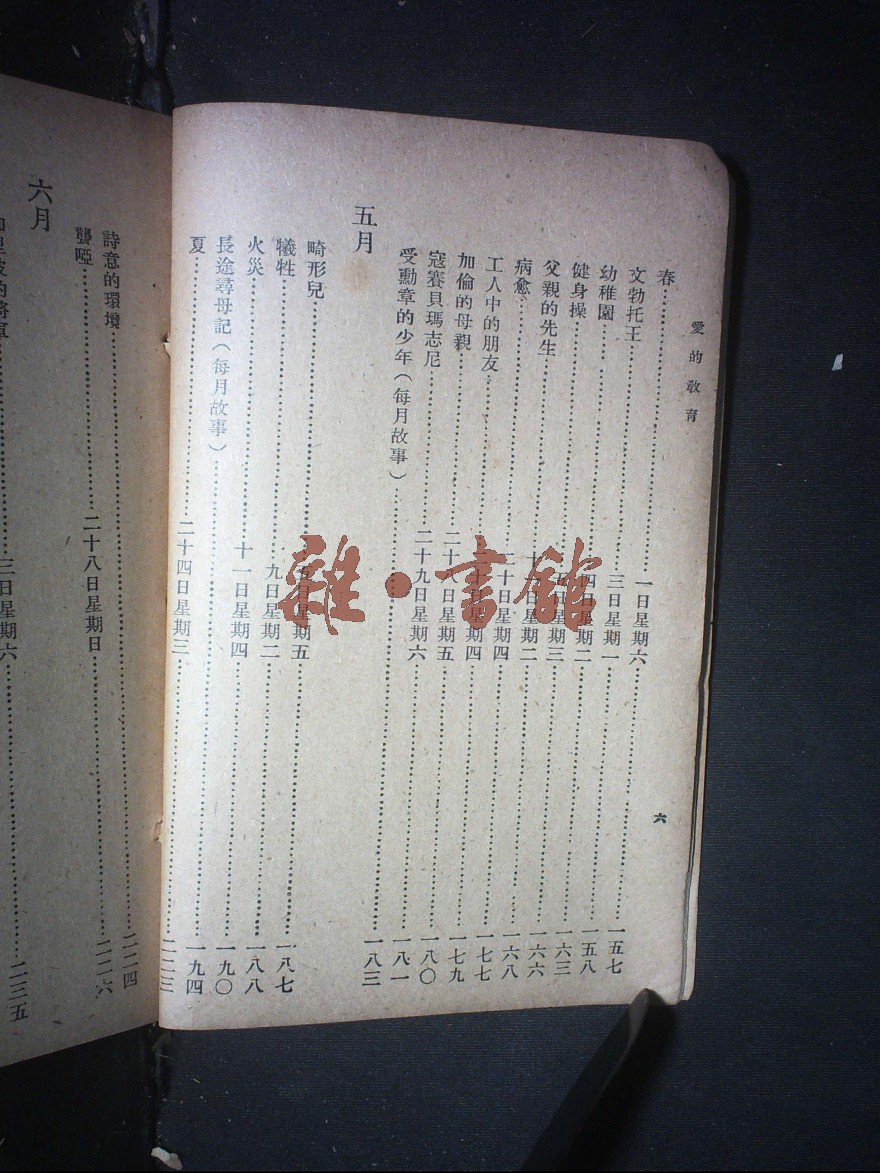 愛的敎育
六
春……一日星期六……一五七
文勃托王……三日星期一……一五八
幼稚園……四日星期二……一六三
健身操……五日星期三……一六六
父親的先生……日星期二……一六八
病愈……二十日星期四……一七七
工人中的朋友……十日星期四……一七九
加倫的母親……二十八日星期五……一八〇
寇賽貝瑪志尼……二十九日星期六……一八一
受勳章的少年(每月故事)……一八三
五月
畸形兒……五日星期五……一八七
犧牲……九日星期二……一八八
火災……十一日星期四……一九〇
長途尋母記(每月故事)……一九四
夏……二十四日星期三……二二三
詩意的環境……二二四
聾啞……二十八日星期日……二二六
六月
里波的將軍……三日星期六……二三五
雜·書館